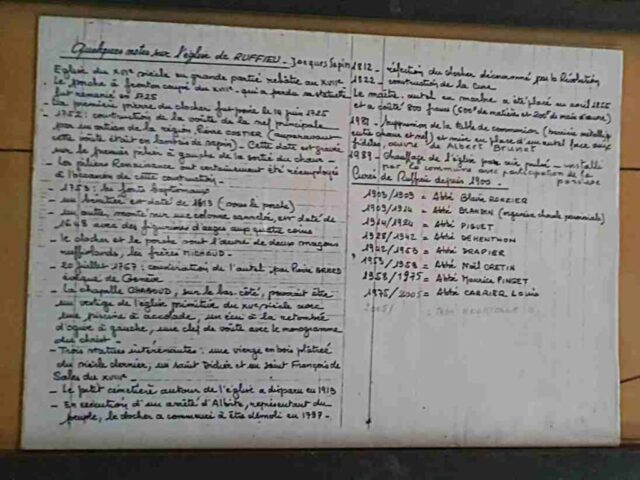 Quelques notes sur l'église de RUFFIEU - Jacques Sapin
Eglise du XVIe siècle en grande partie refaite au XVIIe
Le porche à fronton coupé du XVIIe - qui a perdu sa statuette
fut remanié en 1725
- La première pierre du clocher fut posée le 14 juin 1725
- 1752: construction de la voûte de la nef principale
par un artisan de la région, Pierre COSTIER (auparavant
cette voûte était en lambris de sapin). Cette date est gravée
sur le premier pilier à gauche de la sortie du chœur -
- Les piliers Romans ont certainement été réemployés
à l'occasion de cette construction -
- 1753: les fonts baptismaux
- un bénitier est daté de 1613 (sous le porche)
- un autre, monté sur une colonne cannelée, est daté de
1648 avec des figurines d'anges aux quatre coins
- le clocher et le porche sont l'œuvre de deux maçons
ruffiolands, les frères MICHAUD -
- 20 juillet 1767: consécration de l'autel par Pierre
évêque de Genève
- La chapelle, sur le bas-côté, pourrait être
un vestige de l'église primitive du XVe siècle avec
une piscine à accolade, un écu à la retombée
d'ogive à gauche, une clef de voûte avec le monogramme
du Christ -
- Trois statues intéressantes: une vierge en bois plâtrée
du siècle dernier, un saint Didier et un saint François de
Sales du XVIIIe -
- Le petit cimetière autour de l'église a disparu en 1913
- En exécution d'un arrêté d'Albitte, représentant du
peuple, le clocher a commencé à être démoli en 1797 -
1812 - réfection du clocher découronné par la Révolution
1822 - construction de la cure
Le maître-autel en marbre a été placé en avril 1825
et a coûté 800 francs (600F de matières et 200F de main d'œuvre)
1981 - Suppression de la table de communion (barrière métallique
entre chœur et nef) et mise en place d'un autel face aux
fidèles, œuvre de Albert Brunet
1989 - chauffage de l'église par air pulsé - installé
par la commune avec participation de la
paroisse
Curés de Ruffieu depuis 1900 -
1903/1909 = Abbé Blaise RORZIER
1909/1914 = Abbé (organise chorale paroissiale)
1914/1924 = Abbé PIGUET
1928/1942 = Abbé DEMENTHON
1942/1953 = Abbé DRAPIER
1953/1958 = Abbé Noël CRETIN
1958/1975 = Abbé Maurice PINGET
1975/2005 = Abbé CARRIER Louis
2005/ = Abbé